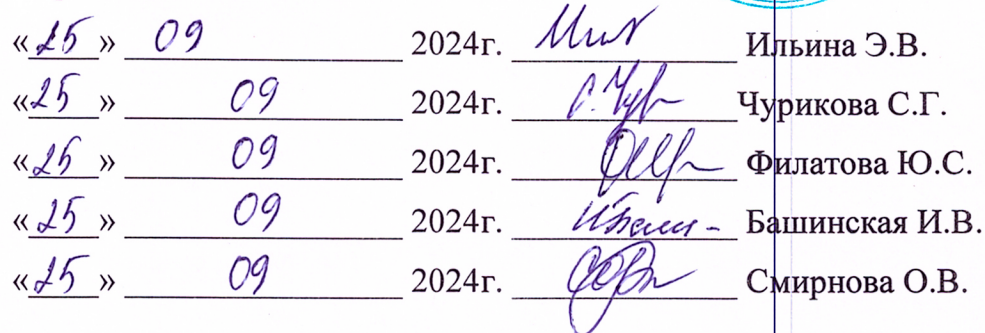 «25» 09 2024г. Ильина Э.В.
«25» 09 2024г. Чурикова С.Г.
«25» 09 2024г. Филатова Ю.С.
«25» 09 2024г. Башинская И.В.
«25» 09 2024г. Смирнова О.В.